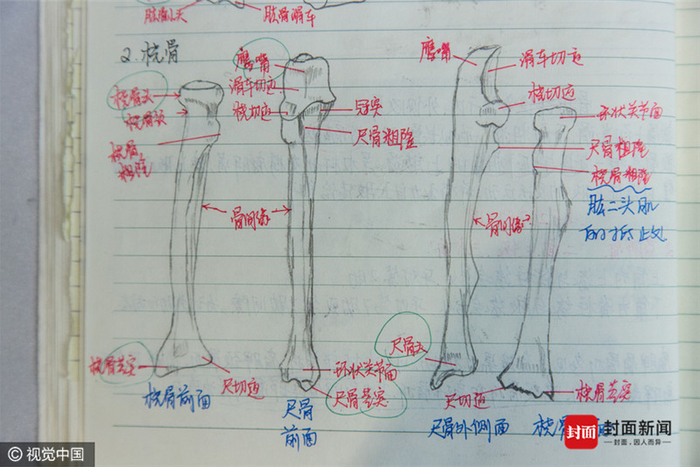 肱骨滑车
2. 桡骨
桡骨头
桡骨颈
桡骨
粗隆
骨间缘
桡骨茎突
尺切迹
桡骨前面
鹰嘴
滑车切迹
桡切迹
冠突
尺骨粗隆
环状关节面
尺骨茎突
尺骨
前面
鹰嘴
滑车切迹
桡切迹
环状关节面
尺骨粗隆
桡骨粗隆
肱二头肌
的抵止处
骨间缘
尺骨头
尺切迹
桡骨茎突
尺骨外侧面
桡骨
封面
封面新闻
封面，因人而异
©视觉中国